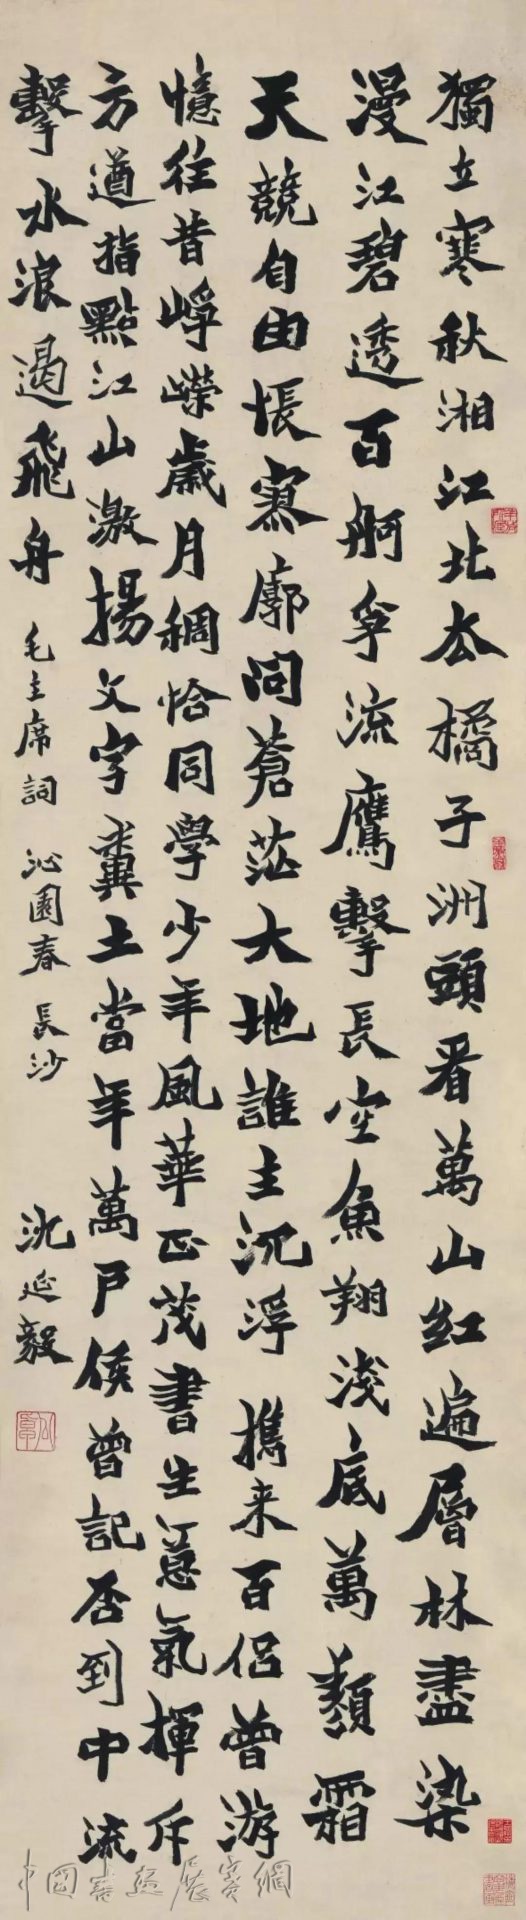 獨立寒秋湘江北去橘子洲頭看萬山紅遍層林盡染
漫江碧透百舸爭流鷹擊長空魚翔淺底萬類霜
天競自由悵寥廓問蒼茫大地誰主沉浮 攜来百侣曾游
憶往昔崢嶸歲月稠恰同學少年風華正茂書生意氣揮斥
方遒指點江山激揚文字糞土當年萬戶侯曾記否到中流
擊水浪遏飛舟 毛主席詞 沁園春 長沙 沈延毅
中國書画展賽網